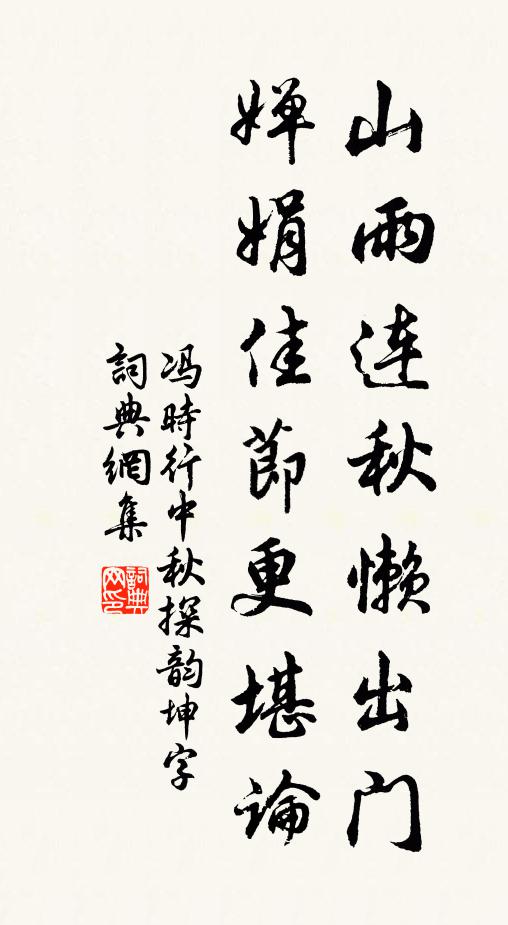 山雨連秋懶出門
嬋娟佳節更堪論
冯時行中秋探韵坤字
詞典網集
詞典
网印